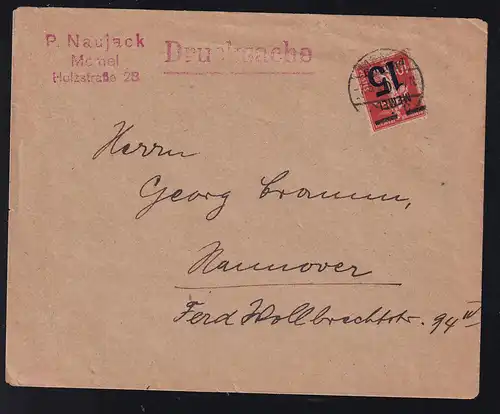 P. Naujack
Memel
Holzstraße 28
Drucksache
15
MEMEL
Herrn
Georg Bramm,
Hannover
Ferd Wollbrechtstr. 94 IV